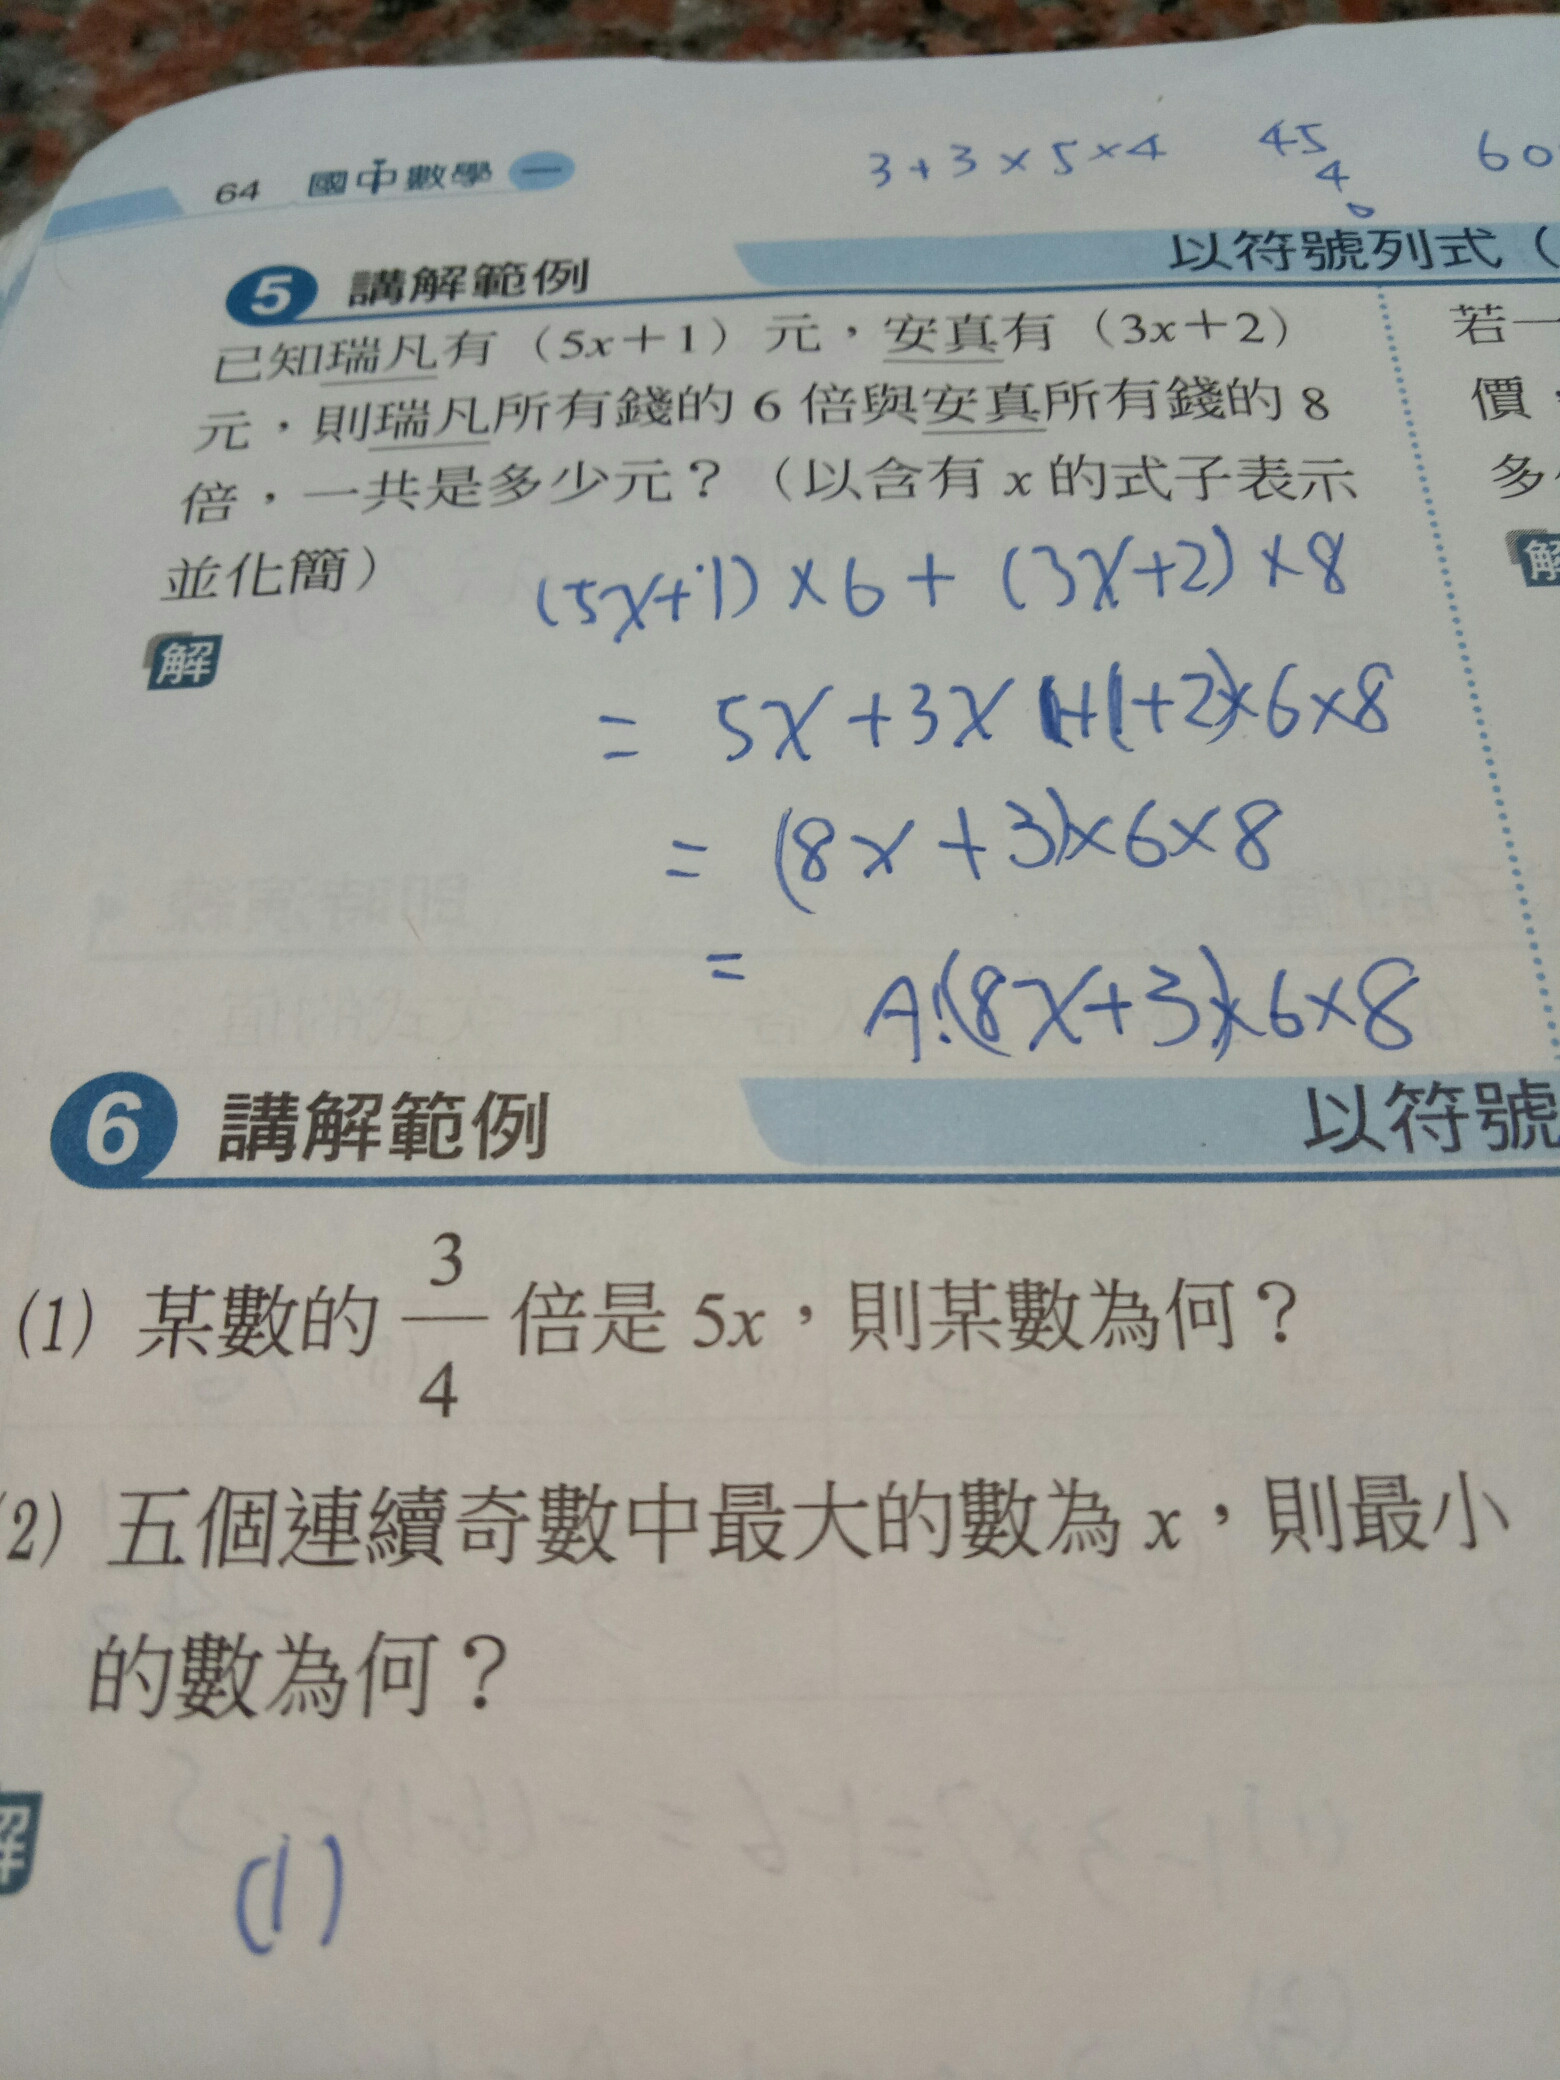 64 國中數學 一
3+3×5×4
45
4
0
60
5 講解範例
以符號列式（
已知瑞凡有（5x＋1）元，安真有（3x＋2）
元，則瑞凡所有錢的 6 倍與安真所有錢的 8
倍，一共是多少元？（以含有 x 的式子表示
並化簡）
(5x+1)×6+(3x+2)×8
解
= 5x+3x+(1+2)×6×8
= (8x+3)×6×8
=
A:(8x+3)×6×8
若一
價，
多
解
6 講解範例
以符號
(1) 某數的 3/4 倍是 5x，則某數為何？
2) 五個連續奇數中最大的數為 x，則最小
的數為何？
解
(1)